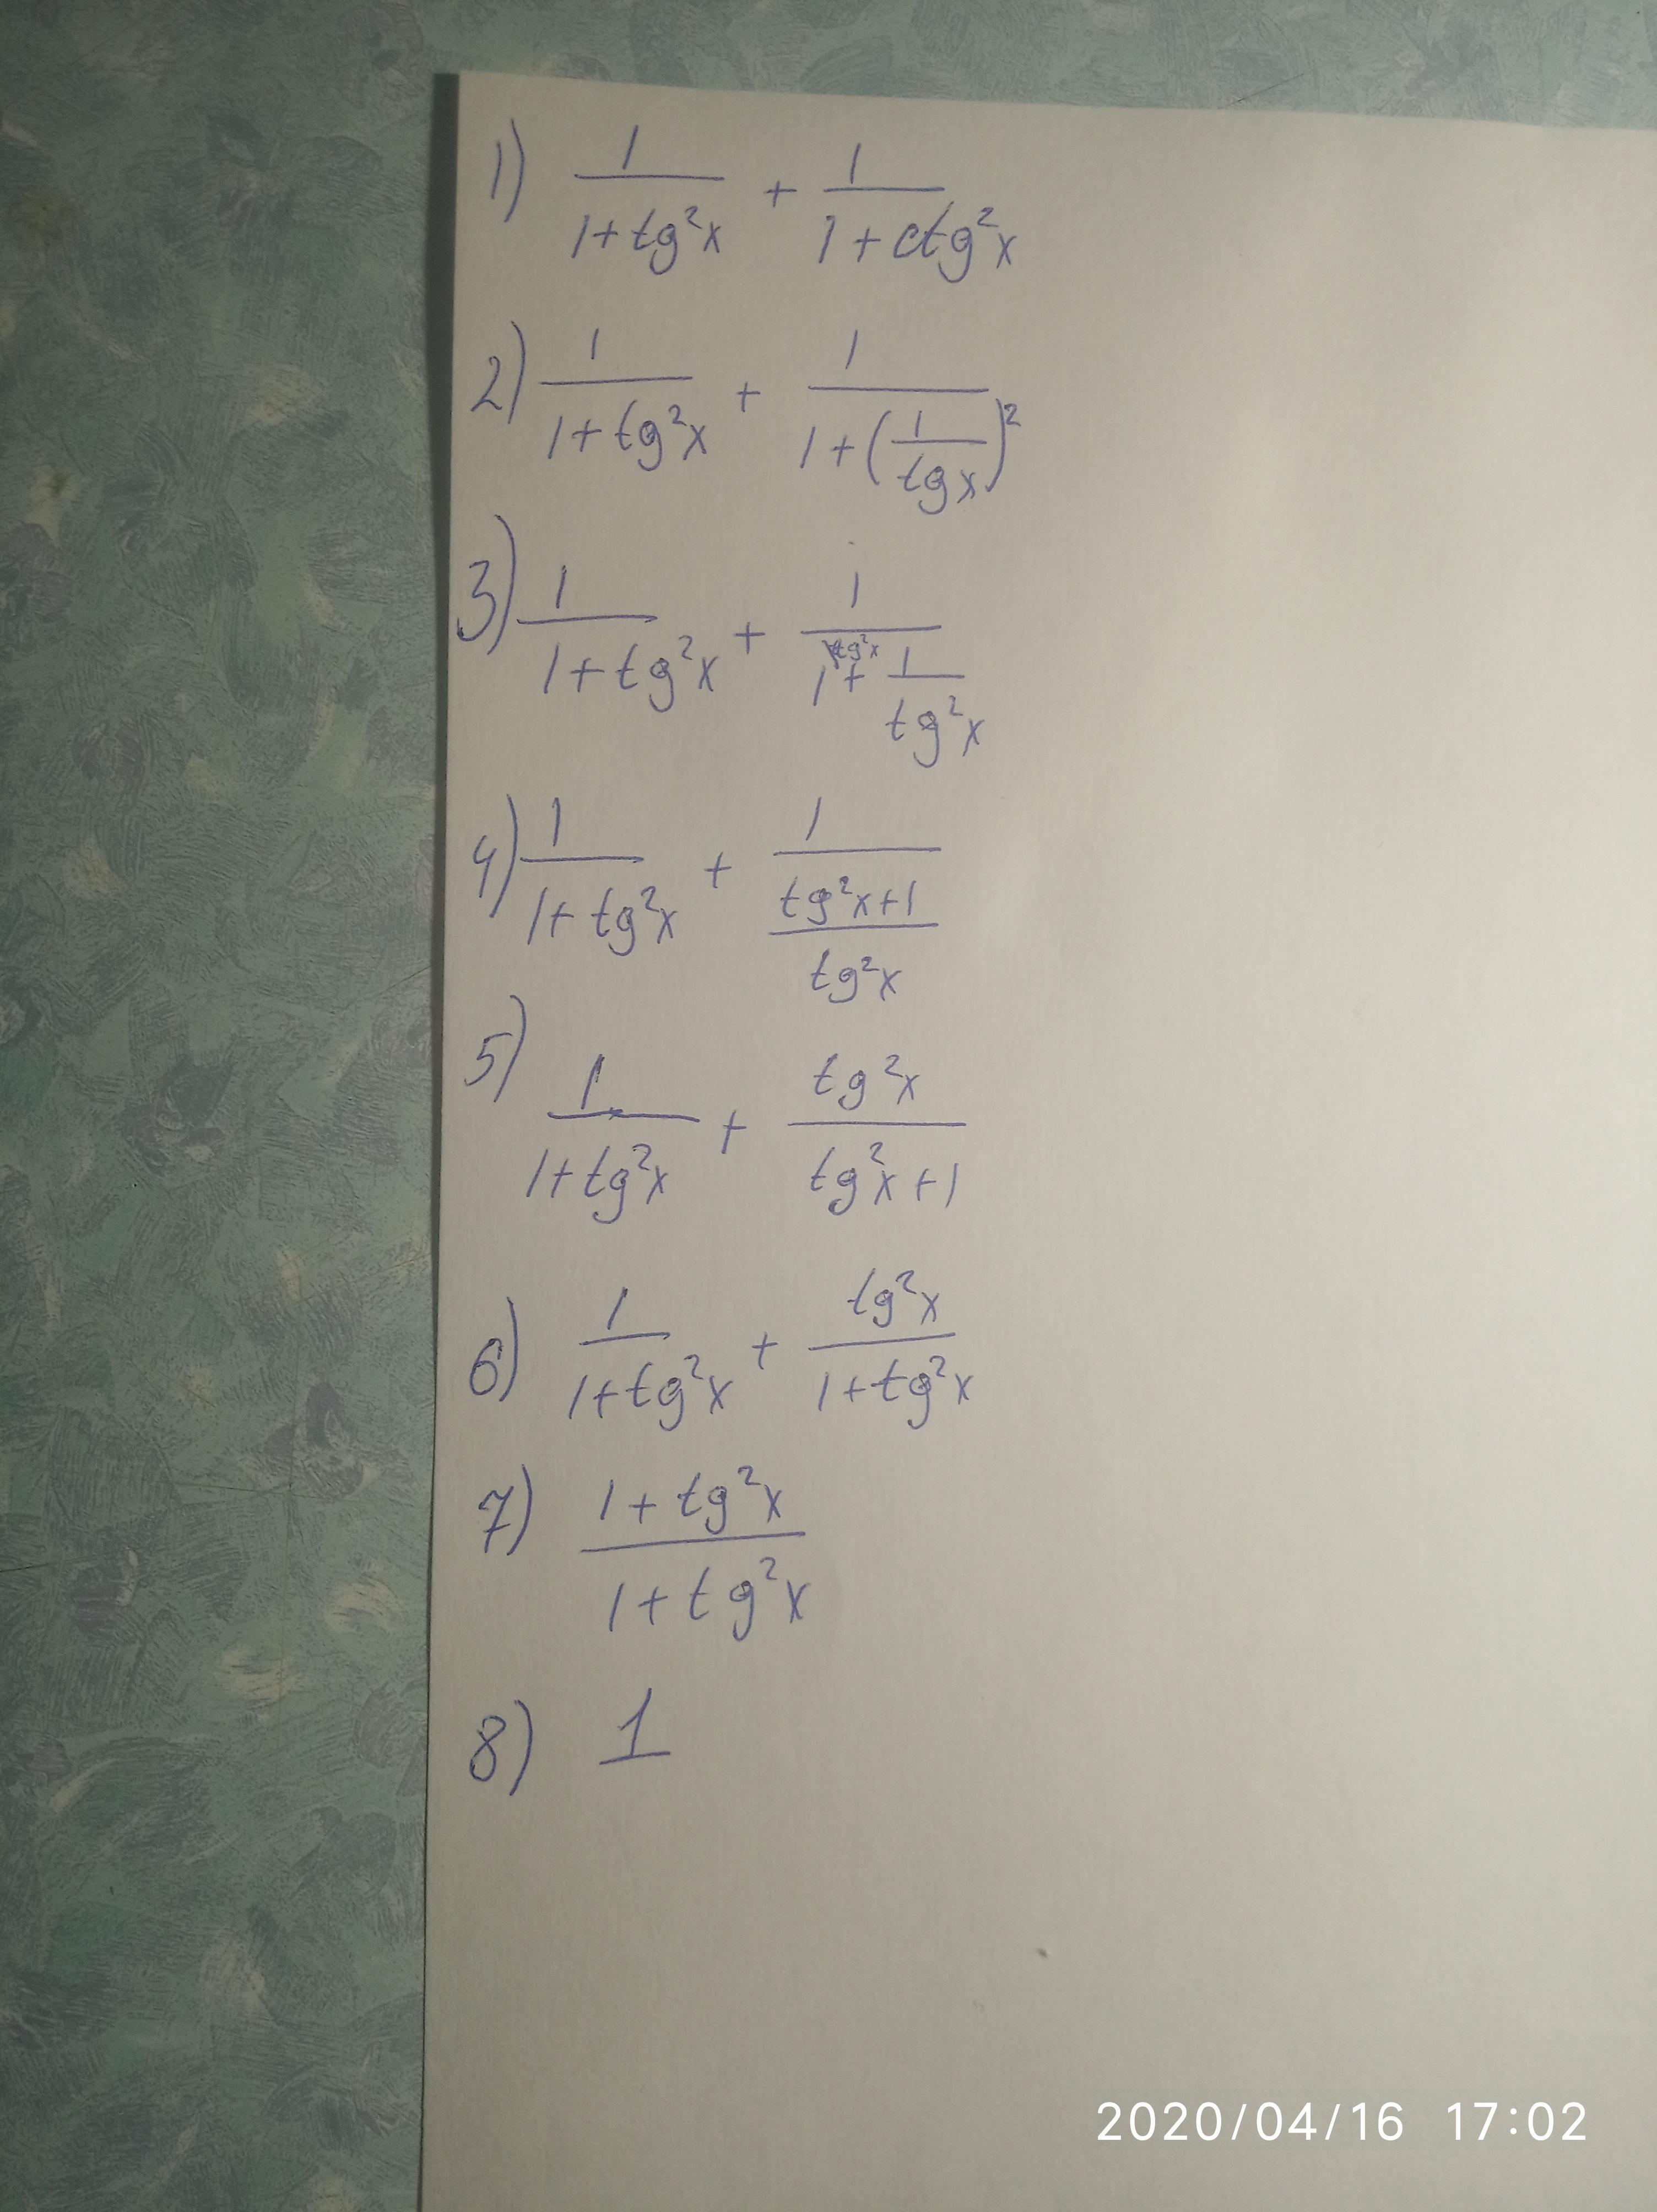 1) 1/(1+tg²x) + 1/(1+ctg²x)
2) 1/(1+tg²x) + 1/(1+(1/tgx)²)
3) 1/(1+tg²x) + 1/(1\tg²x + 1/tg²x)
4) 1/(1+tg²x) + 1/((tg²x+1)/tg²x)
5) 1/(1+tg²x) + tg²x/(tg²x+1)
6) 1/(1+tg²x) + tg²x/(1+tg²x)
7) (1+tg²x)/(1+tg²x)
8) 1
2020/04/16 17:02